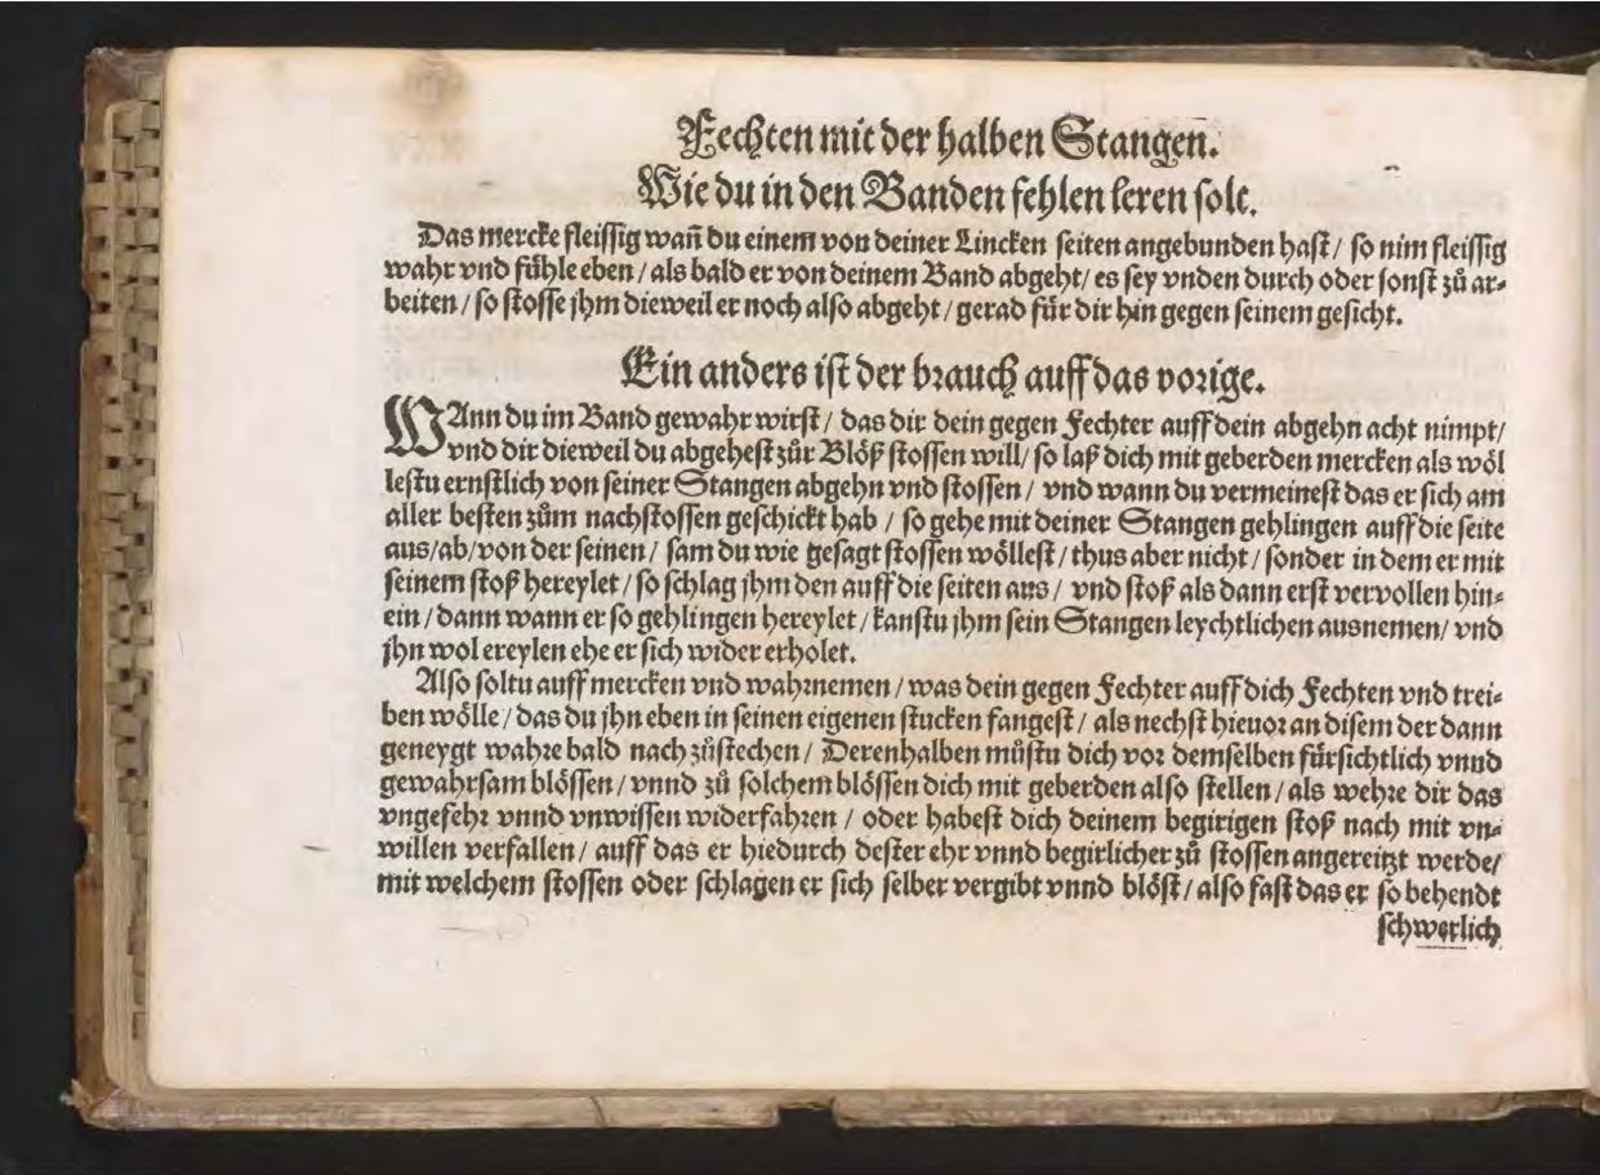 Fechten mit der halben Stangen.
Wie du in den Banden fehlen leren solt.
Das mercke fleissig wañ du einem von deiner Lincken seiten angebunden hast / so nim fleissig
wahr vnd fühle eben / als bald er von deinem Band abgeht / es sey vnden durch oder sonst zů ar-
beiten / so stosse jhm dieweil er noch also abgeht / gerad für dir hin gegen seinem gesicht.
Ein anders ist der brauch auff das vorige.
WAnn du im Band gewahr wirst / das dir dein gegen Fechter auff dein abgehn acht nimpt /
vnd dir dieweil du abgehest zůr Blöß stossen will / so laß dich mit geberden mercken als wöl
lestu ernstlich von seiner Stangen abgehn vnd stossen / vnd wann du vermeinest das er sich am
aller besten zům nachstossen geschickt hab / so gehe mit deiner Stangen gehlingen auff die seite
aus / ab / von der seinen / sam du wie gesagt stossen wöllest / thus aber nicht / sonder in dem er mit
seinem stoß hereylet / so schlag jhm den auff die seiten aus / vnd stoß als dann erst vervollen hin-
ein / dann wann er so gehlingen hereylet / kanstu jhm sein Stangen leychtlichen ausnemen / vnd
jhn wol ereylen ehe er sich wider erholet.
Also soltu auff mercken vnd wahrnemen / was dein gegen Fechter auff dich Fechten vnd trei-
ben wölle / das du jhn eben in seinen eigenen stucken fangest / als nechst hieuor an disem der dann
geneygt wahre bald nach zůstechen / Derenhalben můstu dich vor demselben fürsichtlich vnnd
gewahrsam blössen / vnnd zů solchem blössen dich mit geberden also stellen / als wehre dir das
vngefehr vnnd vnwissen widerfahren / oder habest dich deinem begirigen stoß nach mit vn-
willen verfallen / auff das er hiedurch dester ehr vnnd begirlicher zů stossen angereitzt werde /
mit welchem stossen oder schlagen er sich selber vergibt vnnd blöst / also fast das er so behendt
schwerlich